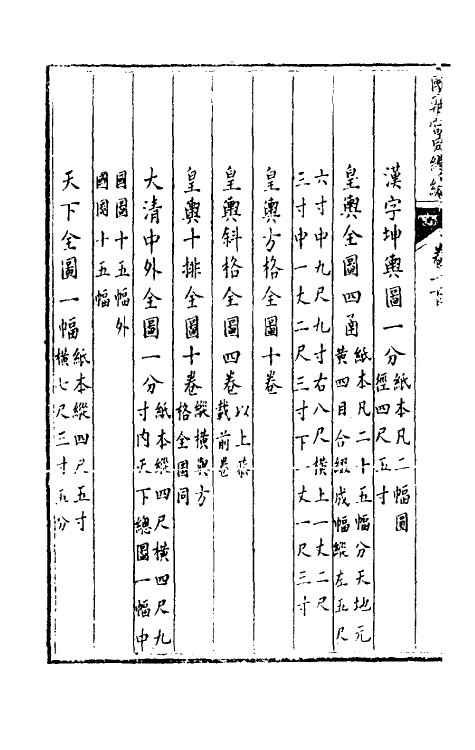 國朝宮史續編
卷一百
漢字坤輿圖一分
紙本凡二幅圓
徑四尺五寸
皇輿全圖四函
紙本凡二十五幅分天地元
黃四目合綴成幅縱左五尺
六寸中九尺九寸右八尺橫上一丈二尺
三寸中一丈二尺三寸下一丈一尺三寸
皇輿方格全圖十卷
皇輿斜格全圖四卷
以上恭
載前卷
皇輿十排全圖十卷
縱橫輿方
格全圖同
大清中外全圖一分
紙本縱四尺橫四尺九
寸內天下總圖一幅中
國圖十五幅外
國圖十五幅
天下全圖一幅
紙本縱四尺五寸
橫七尺三寸五分